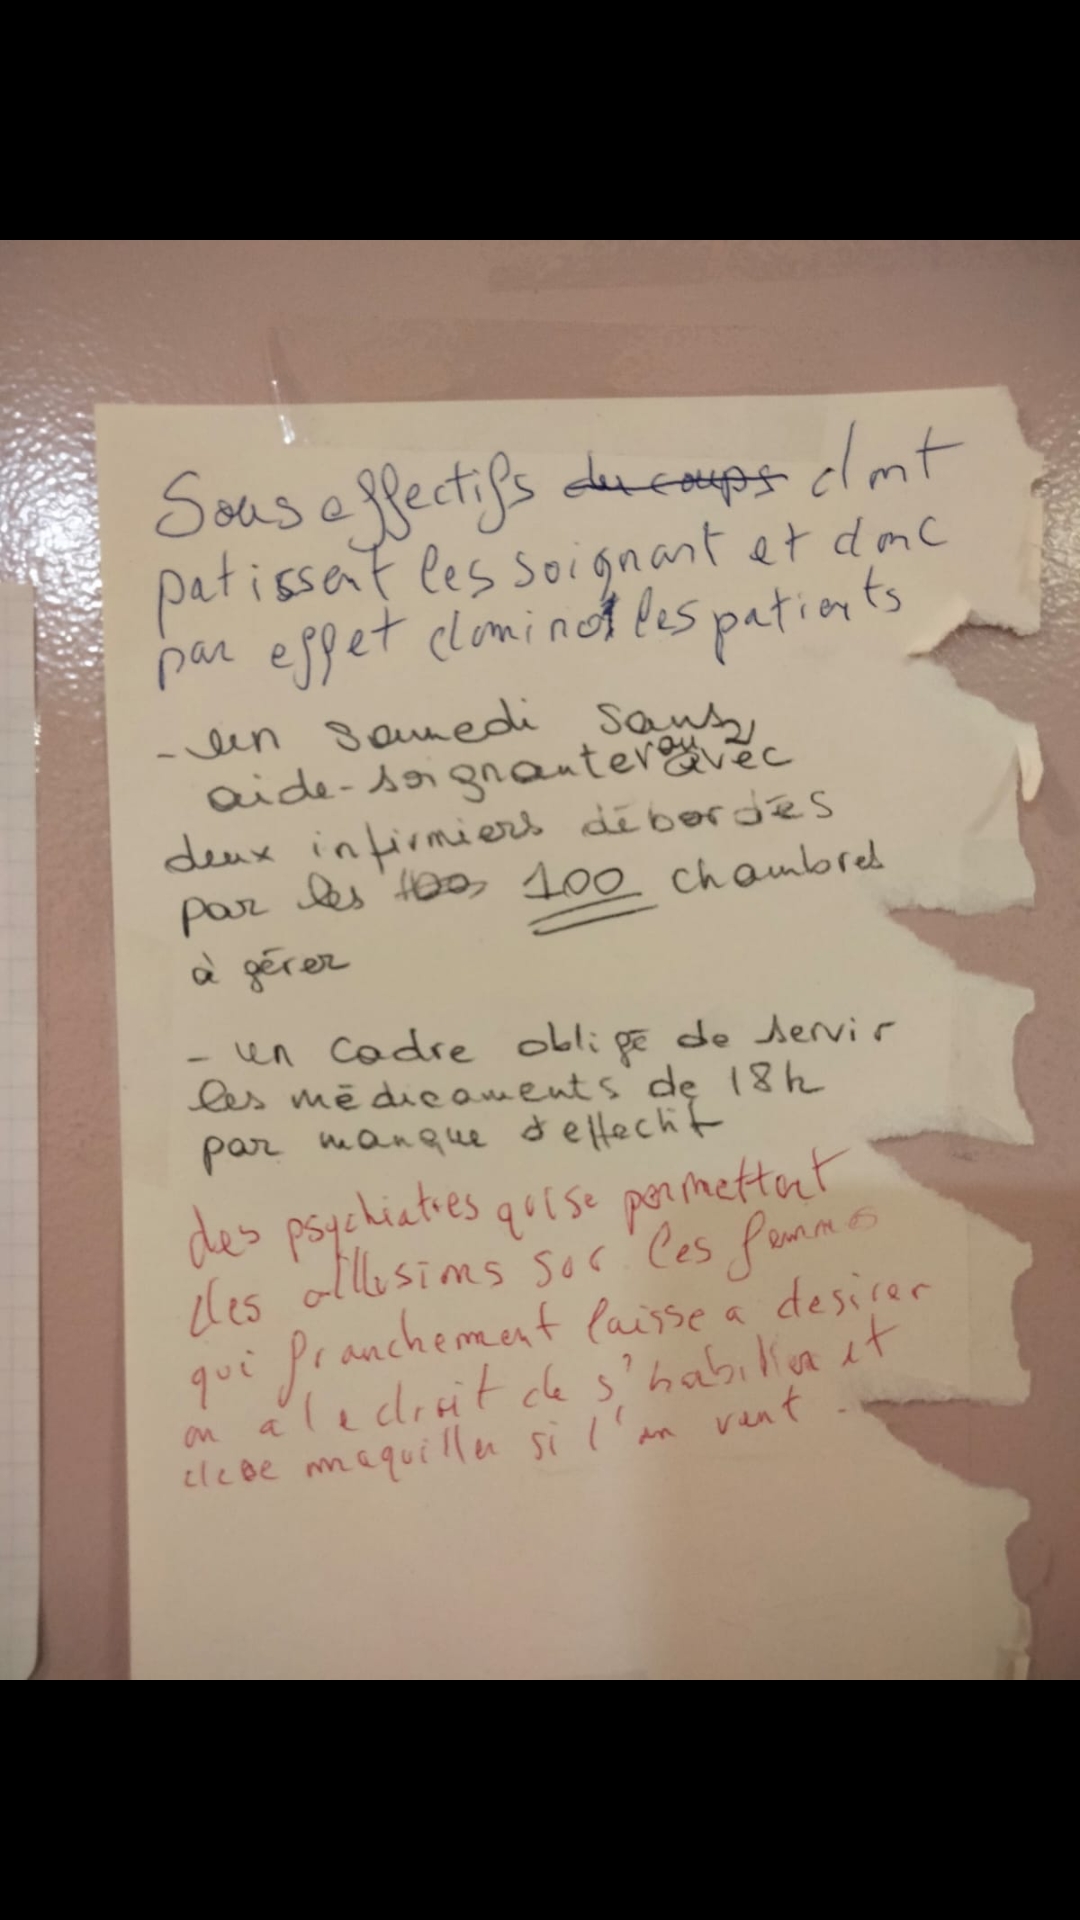 Sous effectifs du coups dont
patissent les soignant et donc
par effet domino les patients
- un samedi sans
aide-soignante ou avec
deux infirmiers débordés
par les 100 100 chambres
à gérer
- un cadre obligé de servir
les médicaments de 18h
par manque d'effectif
des psychiatres qui se permettent
des allusions sur les femmes
qui franchement laisse a desirer
on a le droit de s'habiller et
de se maquiller si l'on veut.